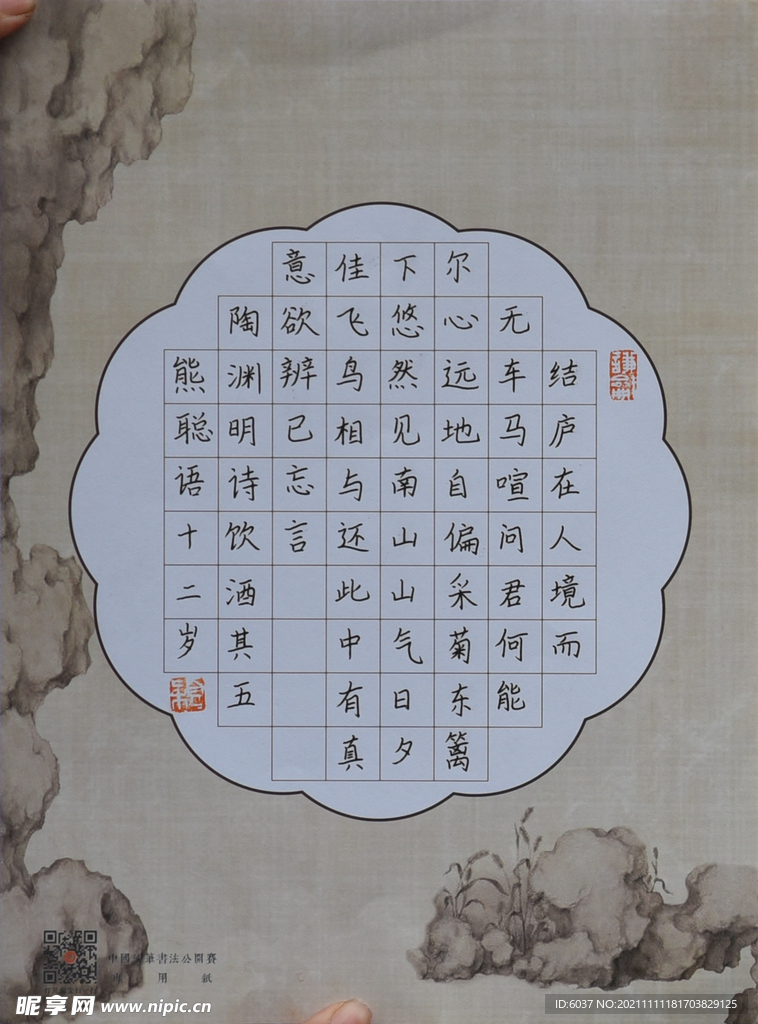 结庐在人境而
无车马喧问君何能
尔心远地自偏采菊东篱
下悠然见南山山气日夕
佳飞鸟相与还此中有真
意欲辨已忘言
陶渊明诗饮酒其五
熊聪语十二岁
中國硬筆書法公開賽
用紙
昵享网 www.nipic.cn
ID:6037 NO:20211111181703829125